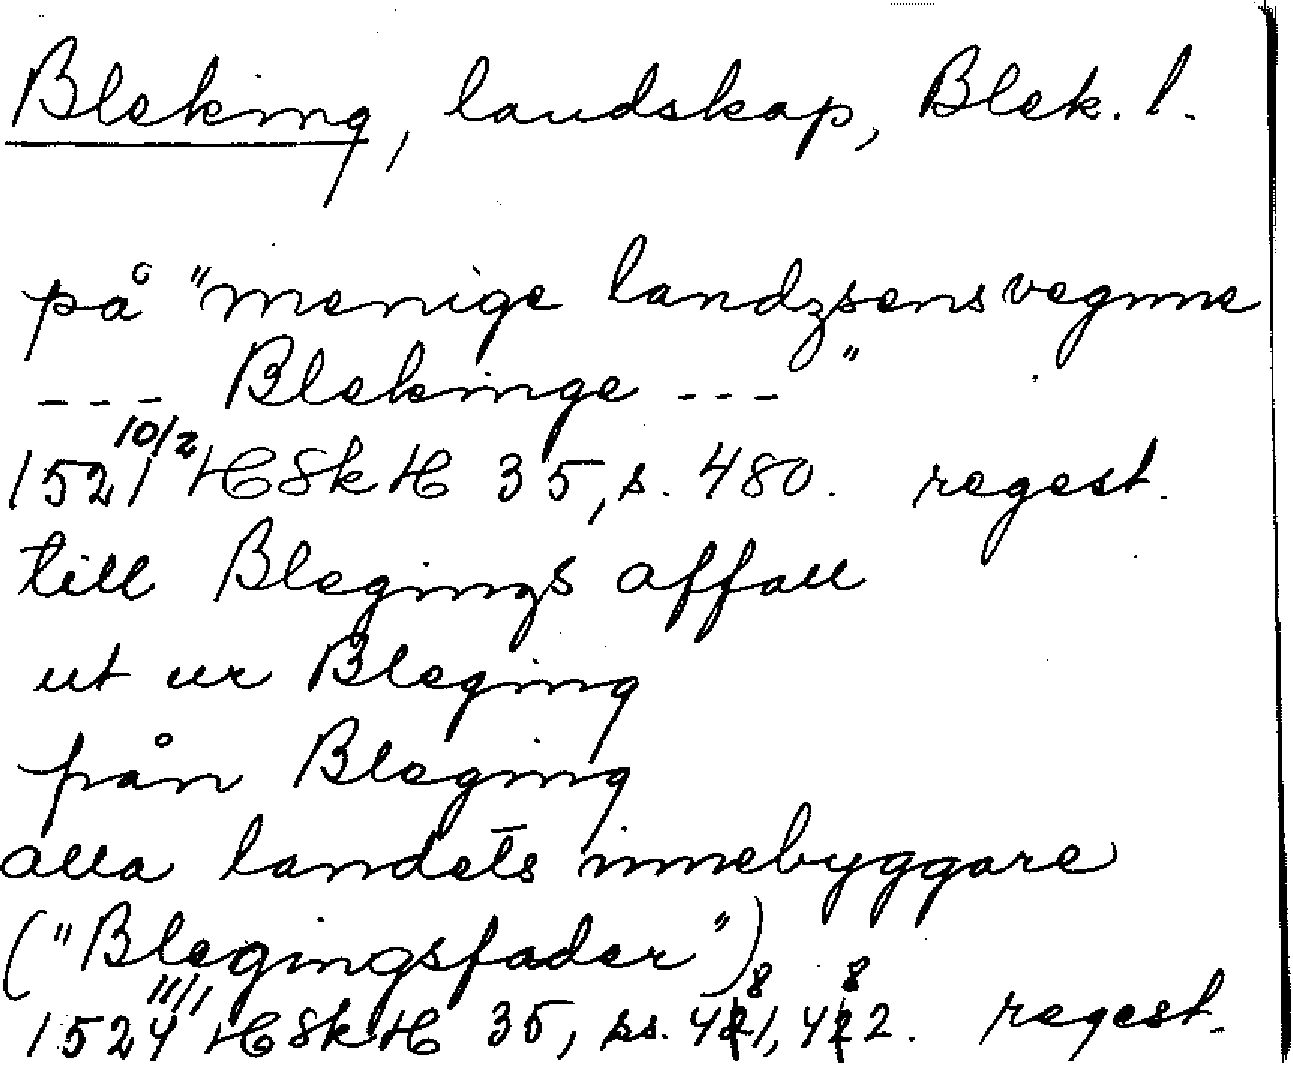 Bleking, landskap, Blek. l.
på "menige landzsens vegnne
--- Blekinge ---"
1521 10/2 HSkH 35, s. 480. regest.
till Blegings affall
ut ur Bleging
från Bleging
alla landets innebyggare
("Blegingsfader")
1524 11/1 HSkH 35, ss. 481, 482. regest.